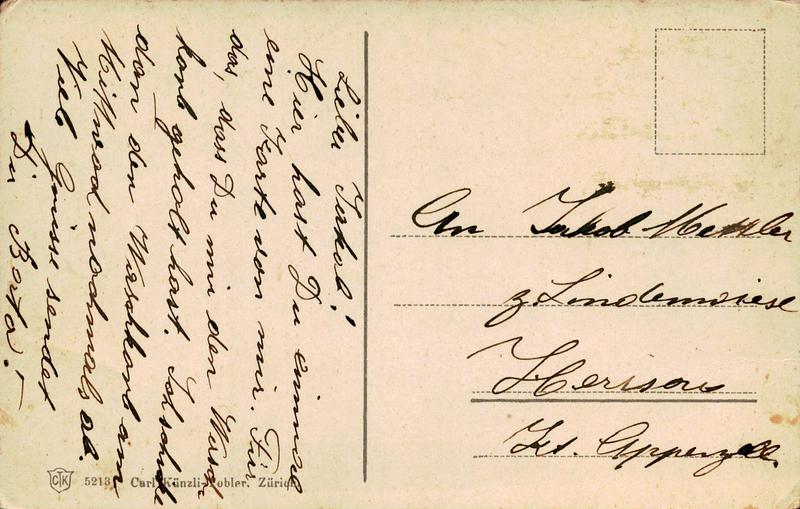 Lieber Jakob!
Hier hast Du einmal
eine Karte von mir. Für
das, dass Du mir den Wasch
korb geholt hast. Ich schicke
dan den Waschkorb am
Mittwoch nochmals ab.
Viele Grüsse sendet
Dir Berta!
An Jakob Mettler
z. Lindenwiese
Herisau
Kt. Appenzell.
CTK 5213 Carl Künzli-Tobler, Zürich